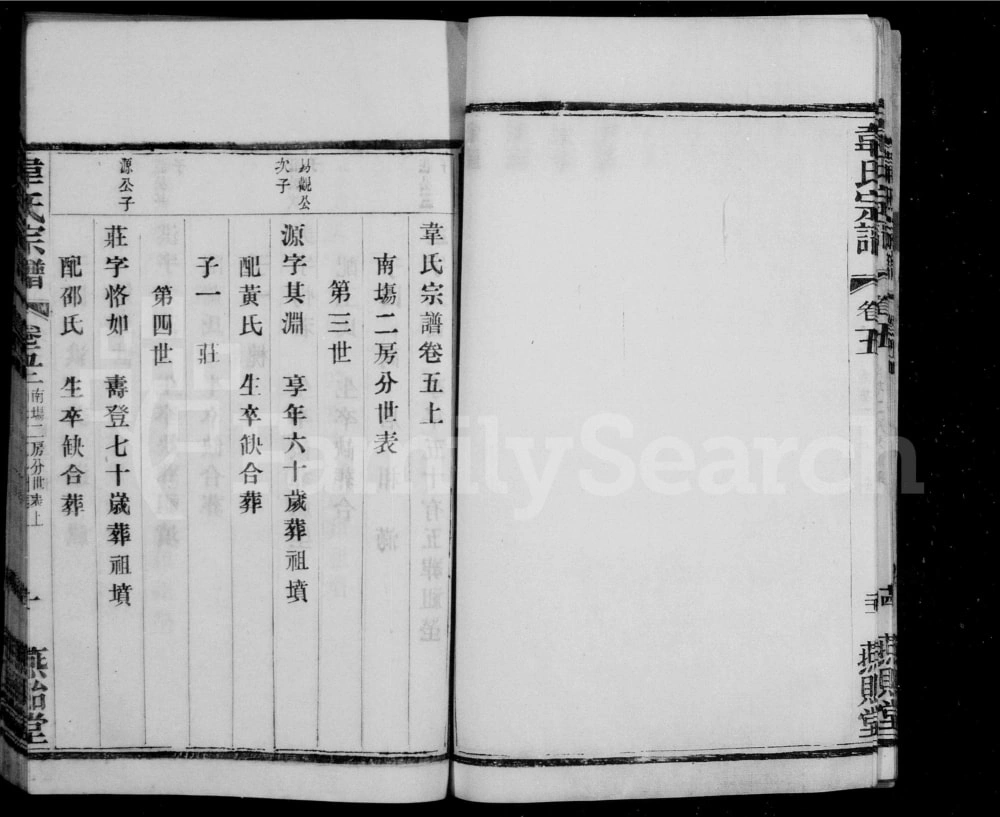 韋氏宗譜
卷五
燕貽堂
韋氏宗譜卷五上
南塲二房分世表
第三世
易觀公
次子
源字其淵 享年六十歲葬祖墳
配黃氏 生卒缺合葬
子一 莊
第四世
源公子
莊字恪如 壽登七十歲葬祖墳
配邵氏 生卒缺合葬
韋氏宗譜
卷五上
南塲二房分世表上
燕貽堂
FamilySearch